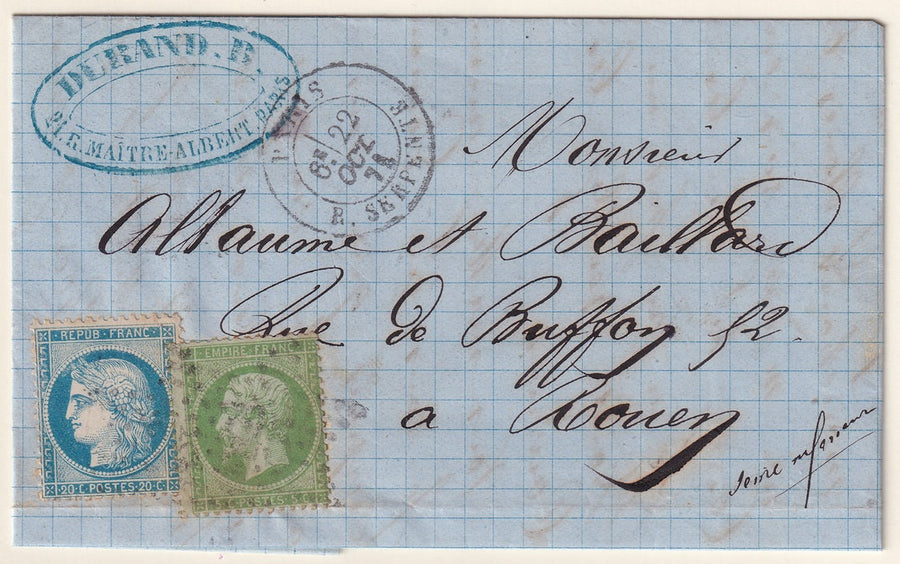 DURAND. B.
21. R. MAÎTRE-ALBERT. PARIS
PARIS
R. SERPENTE
8E
22
OCT
71
Monsieur
Allaume et Baillard
Rue de Buffon 52.
a Rouen
REPUB. FRANC.
20·C·POSTES·20·C·
EMPIRE FRANC.
5·C·POSTES·5·C·